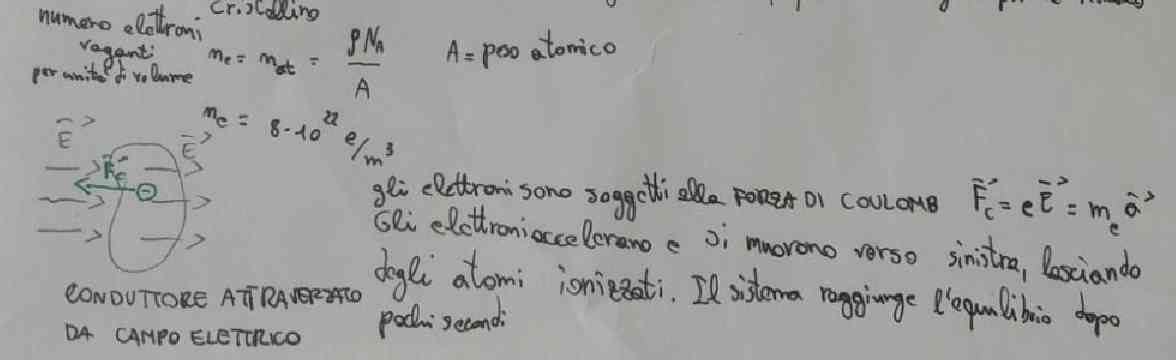 cristallino
numero elettroni
vaganti
per unità di volume
n_e = n_at = ρN_A / A
A = peso atomico
n_e = 8·10²² e/m³
E⃗
E⃗
F⃗_c
⊖
gli elettroni sono soggetti alla FORZA DI COULOMB F⃗_c = e E⃗ = m_e a⃗
Gli elettroni accelerano e si muovono verso sinistra, lasciando
degli atomi ionizzati. Il sistema raggiunge l'equilibrio dopo
pochi secondi
CONDUTTORE ATTRAVERSATO
DA CAMPO ELETTRICO